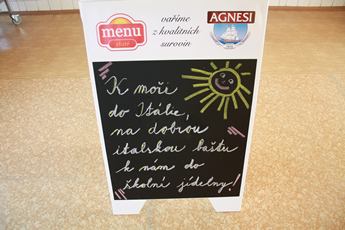 menu
vaříme
z kvalitních
surovin
AGNESI
K moři
do Itálie,
na dobrou
italskou baštu
k nám do
školní jídelny!